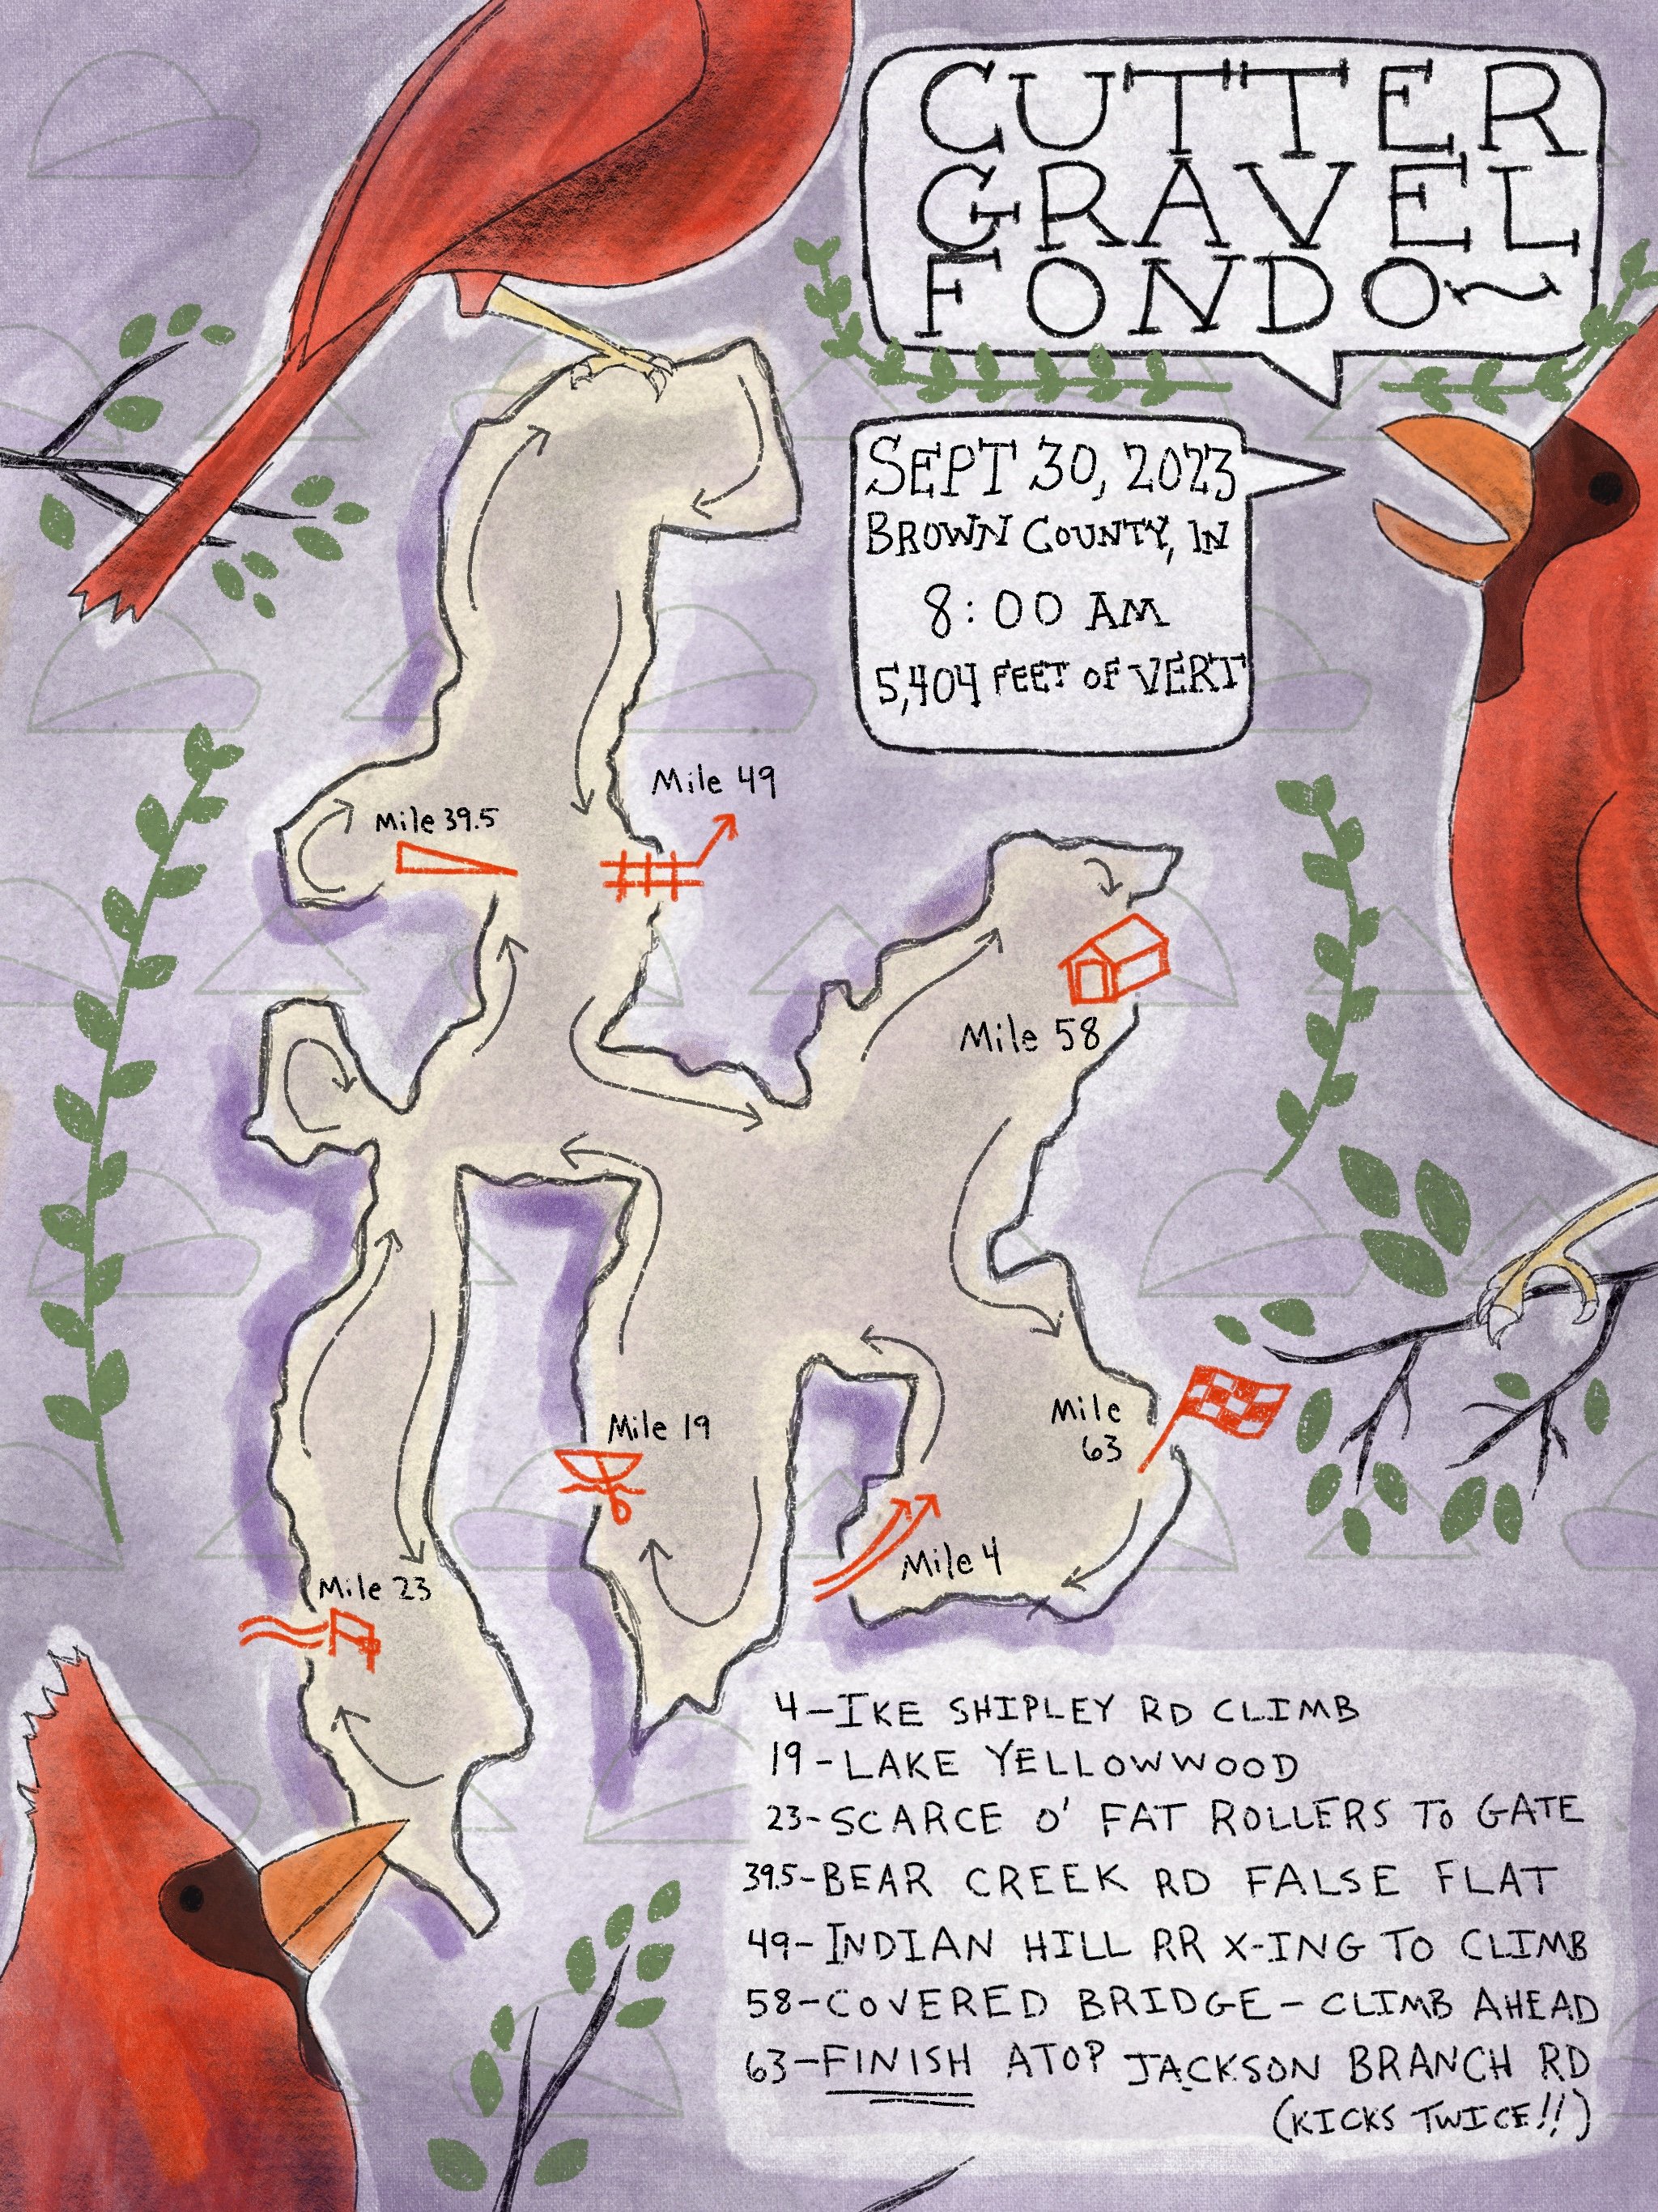 CUTTER
GRAVEL
FONDO~
SEPT 30, 2023
BROWN COUNTY, IN
8:00 AM
5,404 FEET OF VERT
Mile 49
Mile 39.5
Mile 58
Mile
63
Mile 19
Mile 4
Mile 23
4-IKE SHIPLEY RD CLIMB
19-LAKE YELLOWWOOD
23-SCARCE O' FAT ROLLERS TO GATE
39.5-BEAR CREEK RD FALSE FLAT
49-INDIAN HILL RR X-ING TO CLIMB
58-COVERED BRIDGE-CLIMB AHEAD
63-FINISH ATOP JACKSON BRANCH RD
(KICKS TWICE!!)